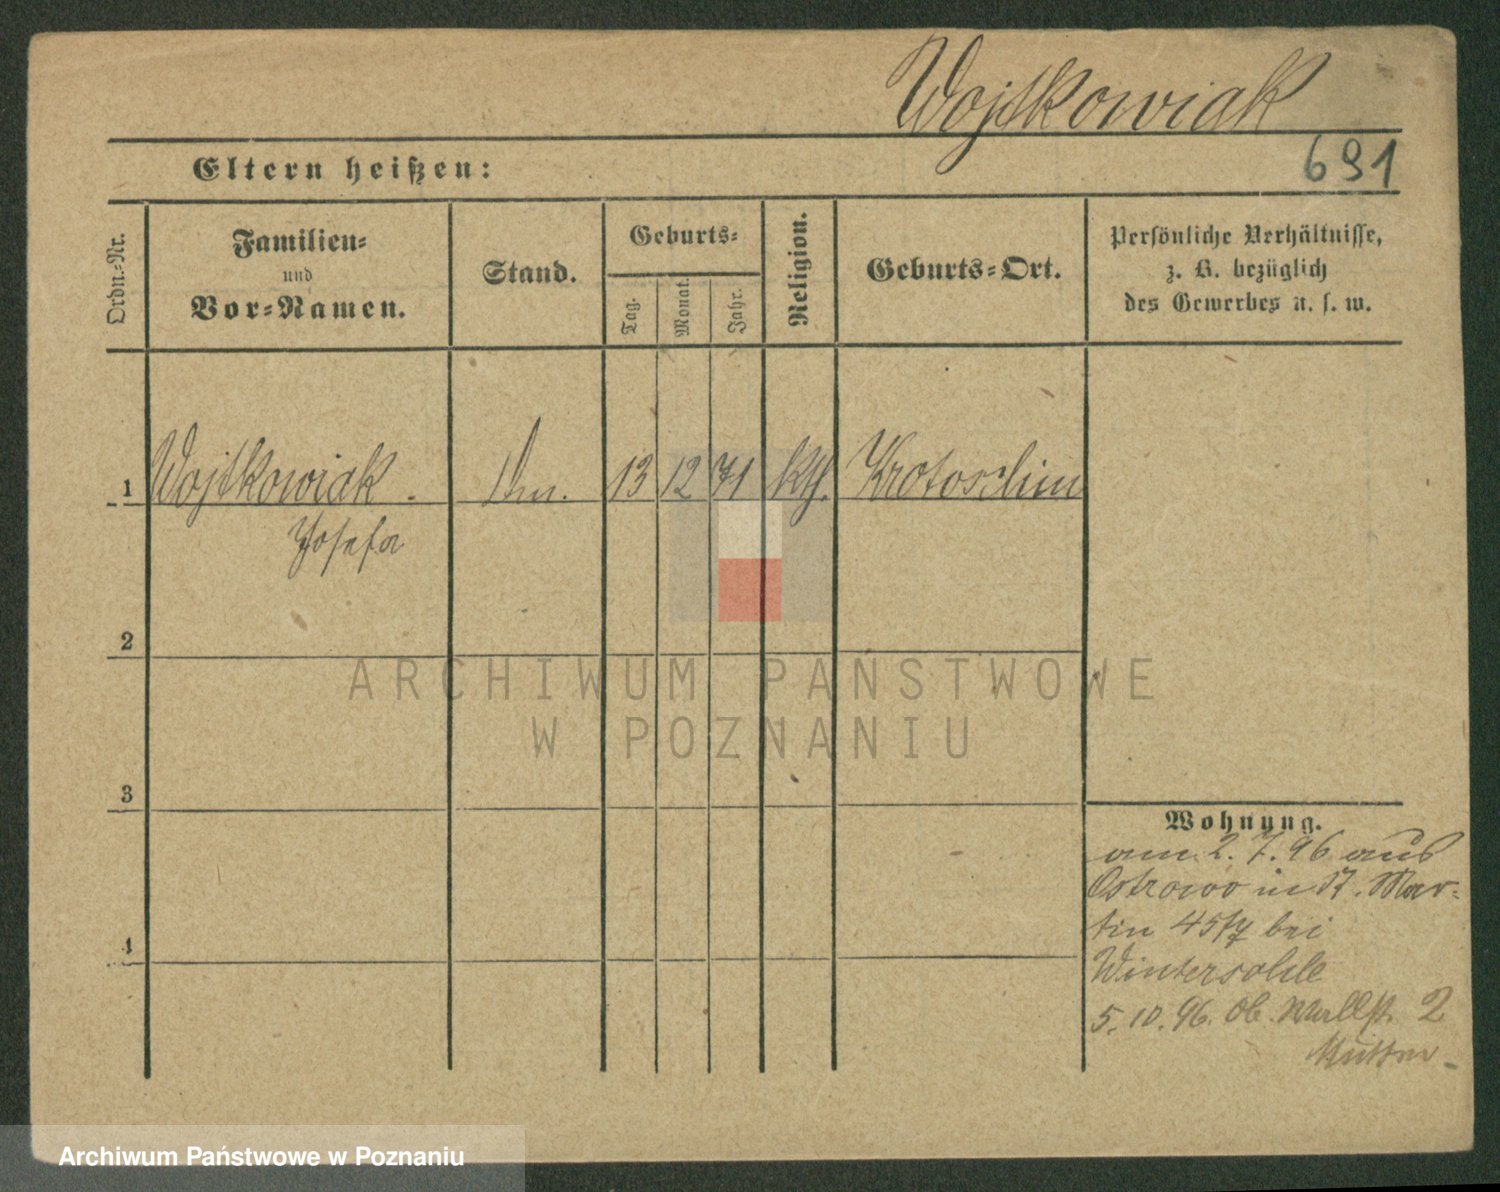 Wojtkowiak
691
Eltern heißen:
Ordn.-Nr.
Familien-
und
Vor-Namen.
Stand.
Geburts-
Tag.
Monat.
Jahr.
Religion.
Geburts-Ort.
Persönliche Verhältnisse,
z. B. bezüglich
des Gewerbes u. s. w.
1 Wojtkowiak 13 12 71 kth. Krotoschin
Josefa
2
3
4
Wohnung.
am 2. 7. 96 aus
Ostrowo in St. Mar-
tin bei
5. 10. 96. Ob. Wallst. 2
ARCHIWUM PAŃSTWOWE
W POZNANIU
Archiwum Państwowe w Poznaniu